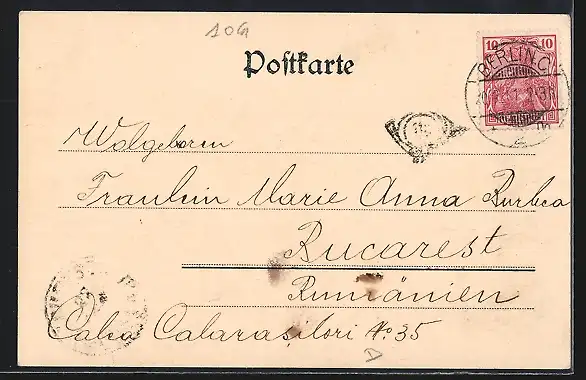 10G
Postkarte
10 10
BERLIN.C.
Walgeboren
Fraulein Marie Anna Burbea
Bucarest
Rumänien
Calea Calarasilori No 35